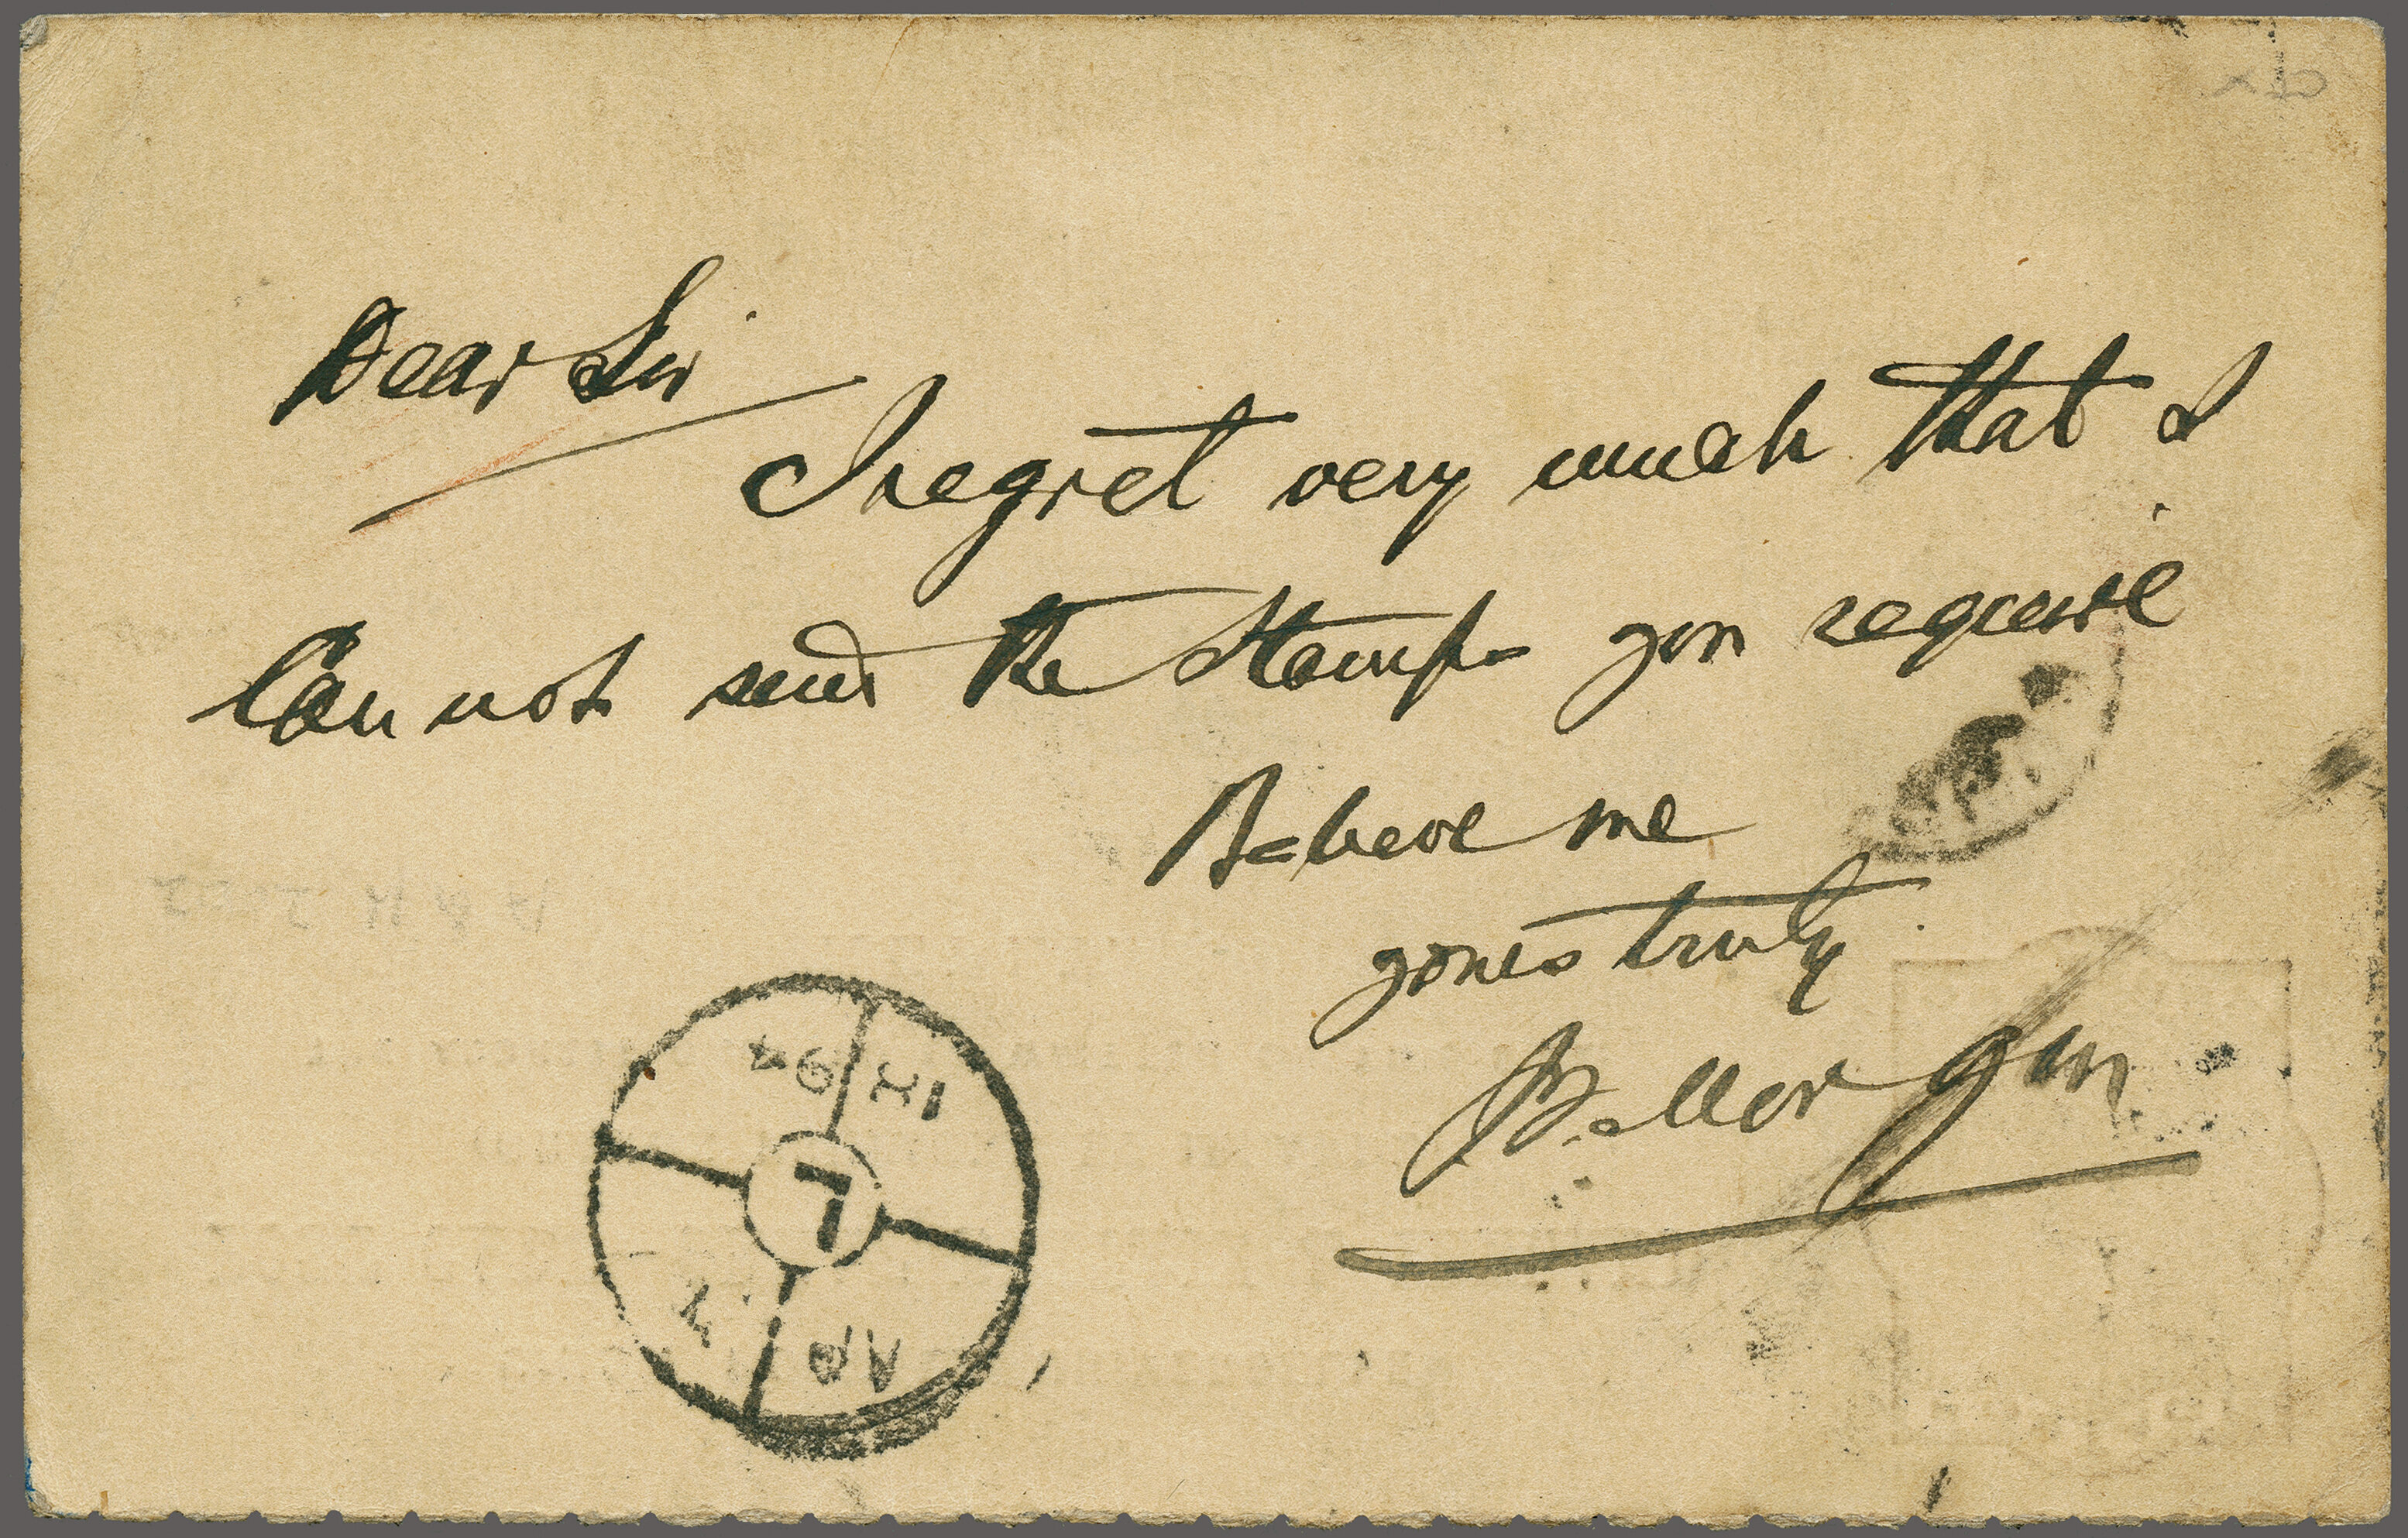 Dear Sir
I regret very much that I
Can not send the Stamps you require
Believe me
yours truly
B. Morgan
L
94
AP